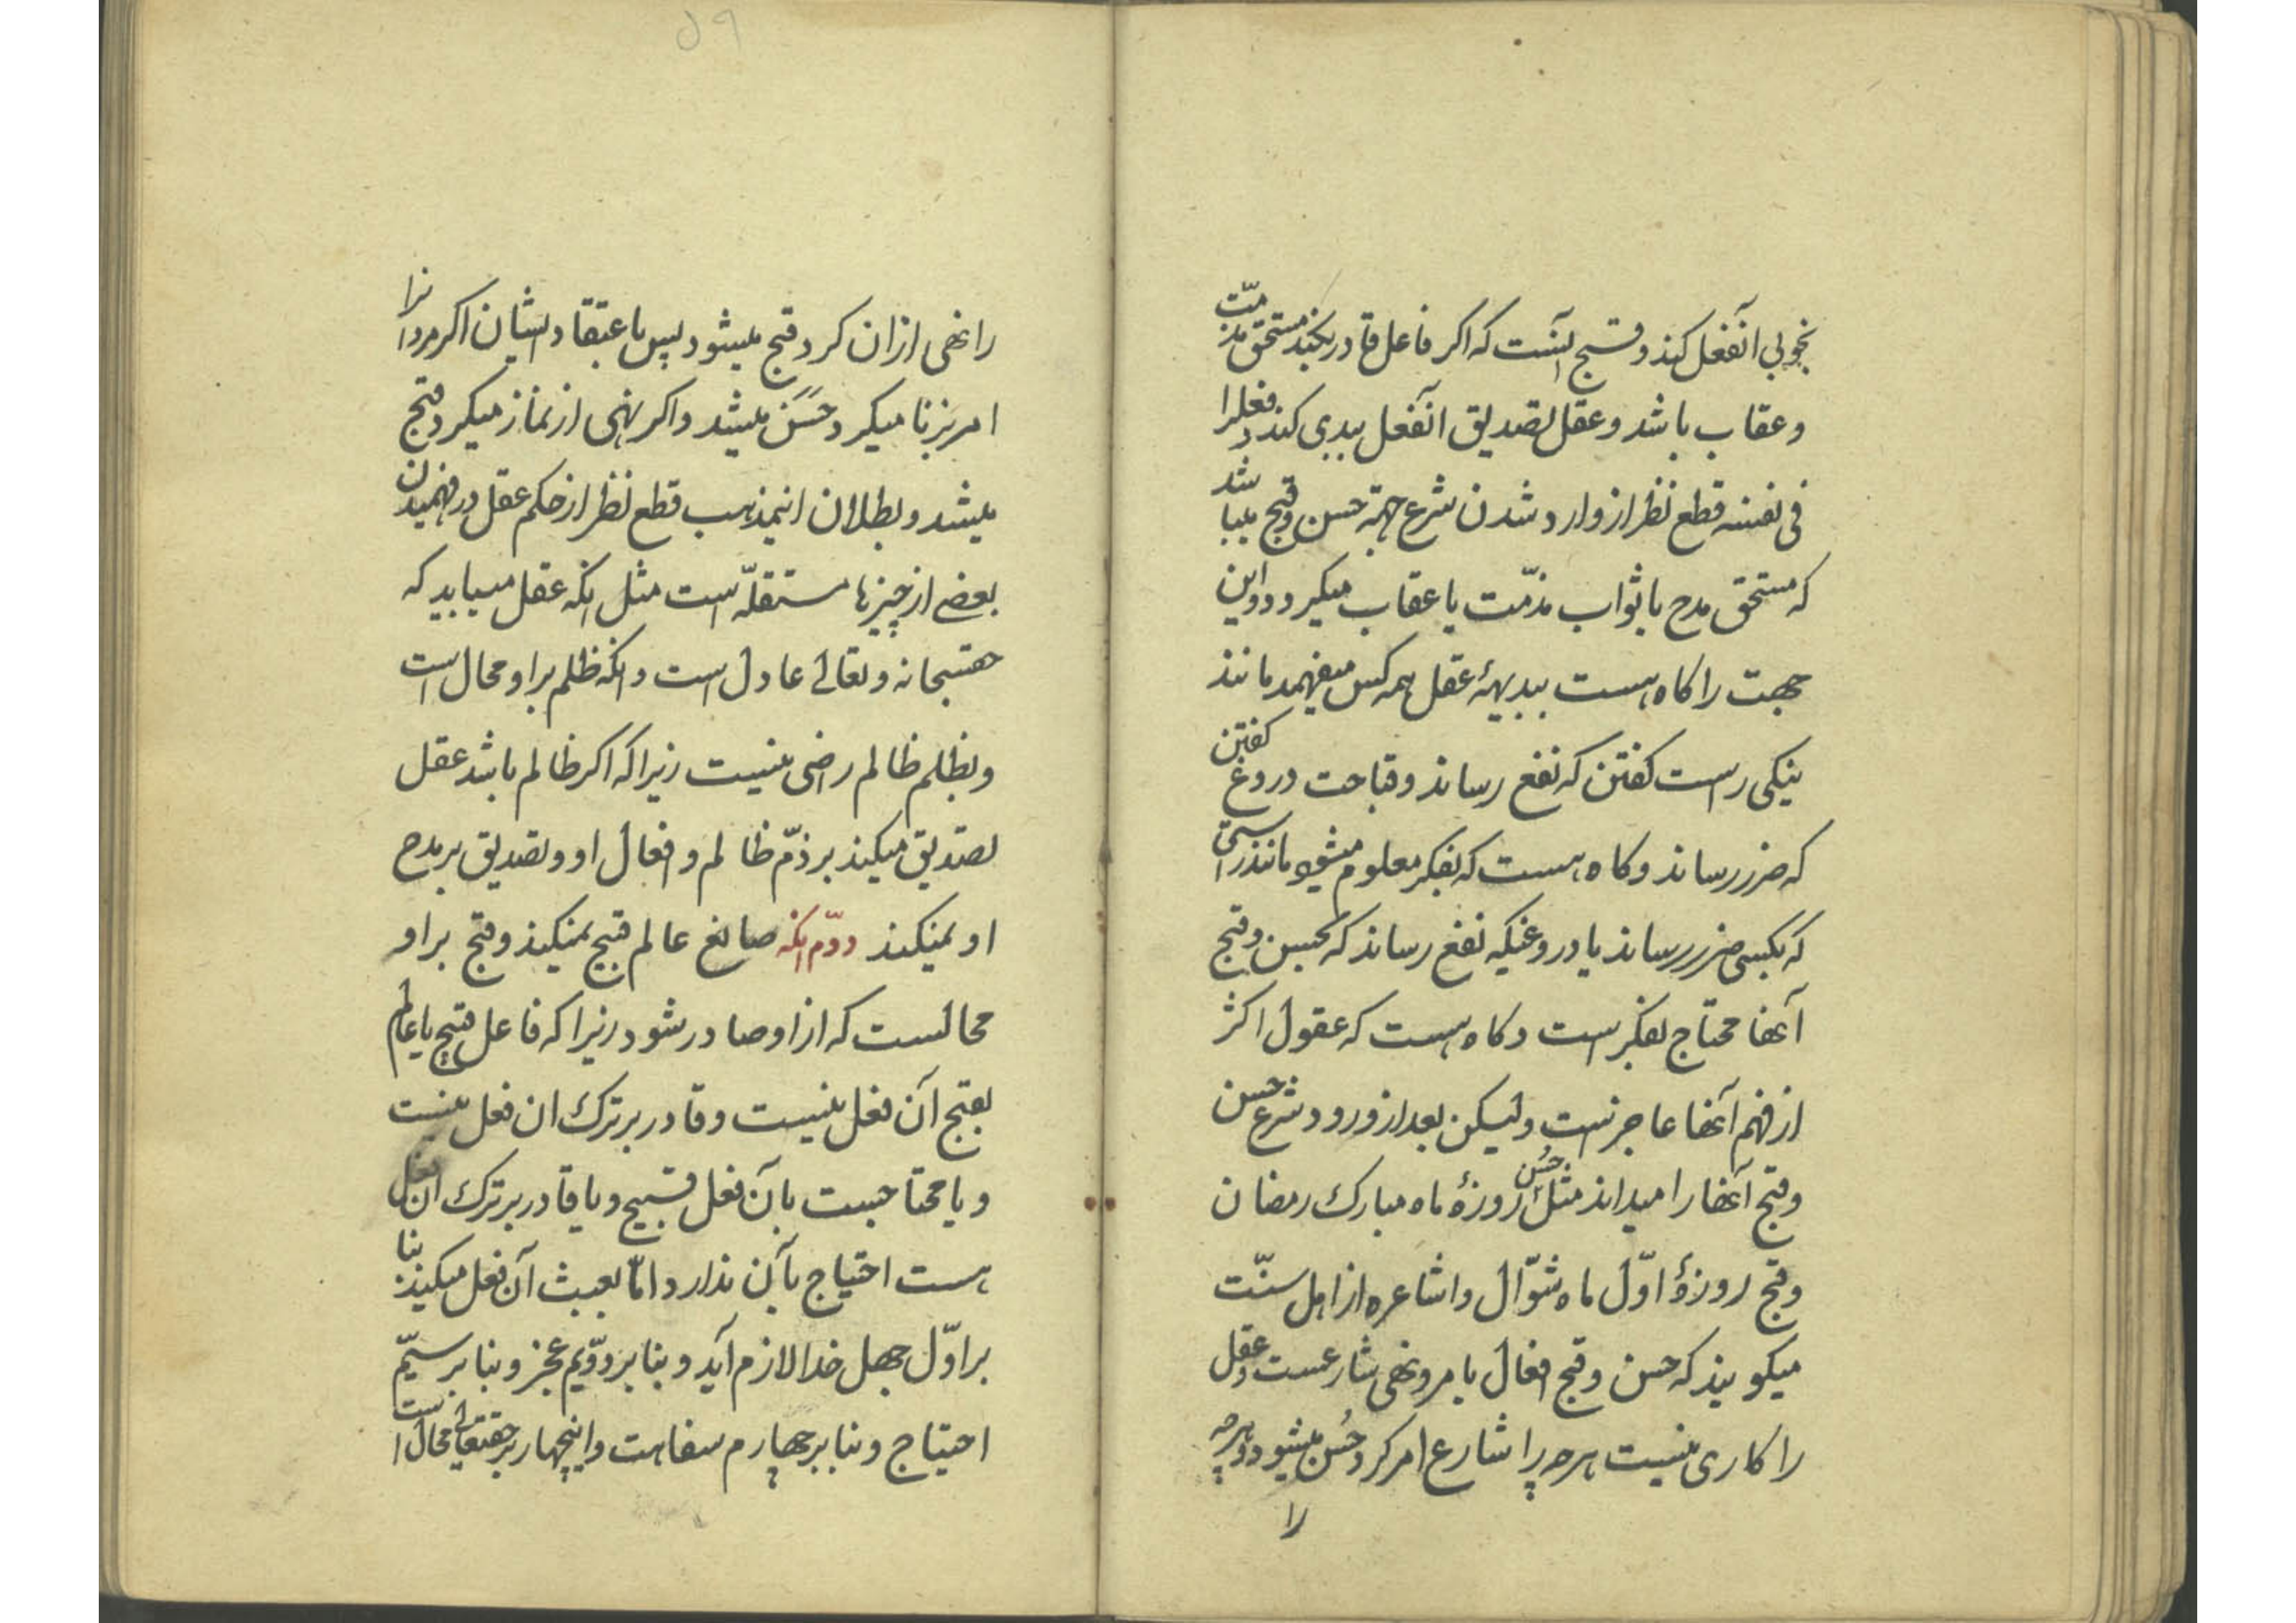 بخوبی آنفعل کند و قبیح آنست که اکر فاعل قادر بکند مستحق مذمّت
و عقاب باشد و عقل تصدیق انفعل ببدی کند و فعلرا
فی نفسه قطع نظر از وارد شدن شرع جهة حسن و قبح میباشد
که مستحق مدح یا ثواب مذمّت یا عقاب میکردد و این
جهت را کاه هست ببدیهۀ عقل همه کس میفهمد مانند
نیکی راست کفتن که نفع رساند و قباحت دروغ کفتن
که ضرر رساند و کاه هست که بفکر معلوم میشود مانند راستی
که بکسی ضرر رساند یا دروغیکه نفع رساند که حسن و قبح
آنها محتاج بفکر است و کاه هست که عقول اکثر
از فهم آنها عاجز است ولیکن بعد از ورود شرع حسن
و قبح آنها را میداند مثل حُسن روزۀ ماه مبارک رمضان
و قبح روزۀ اوّل ماه شوّال و اشاعره از اهل سنّت
میکویند که حسن و قبح افعال بامر و نهی شارعست و عقل
را کاری نیست هرچه را شارع امر کرد حُسن میشود و هرچه
را
را نهی ازان کرد قبح میشود پس باعتقاد ایشان اکر مردانرا
امر بزنا میکرد حَسَن میشد و اکر نهی از نماز میکرد قبح
میشد و بطلان اینمذهب قطع نظر از حکم عقل در فهمیدن
بعضے از چیزها مستقلّه است مثل انکه عقل مییابد که
حقسبحانه و تعالے عادل است و انکه ظلم بر او محال است
و بظلم ظالم راضی نیست زیرا که اکر ظالم باشد عقل
تصدیق میکند بر ذمّ ظالم و افعال او و تصدیق بر مدح
او نمیکند دوّم انکه صانع عالم قبیح نمیکند و قبح بر او
محالست که از او صادر شود زیرا که فاعل قبیح یا عالم
بقبح آن فعل نیست و قادر بر ترک ان فعل نیست
و یا محتاجست بآن فعل قبیح و یا قادر بر ترک ان فعل
هست احتیاج بآن ندارد امّا بعبث آن فعل میکند بنا
بر اوّل جهل خدا لازم آید و بنا بر دوّیم عجز و بنا بر سیّم
احتیاج و بنا بر چهارم سفاهت و اینچهار بر حقتعالی محال است